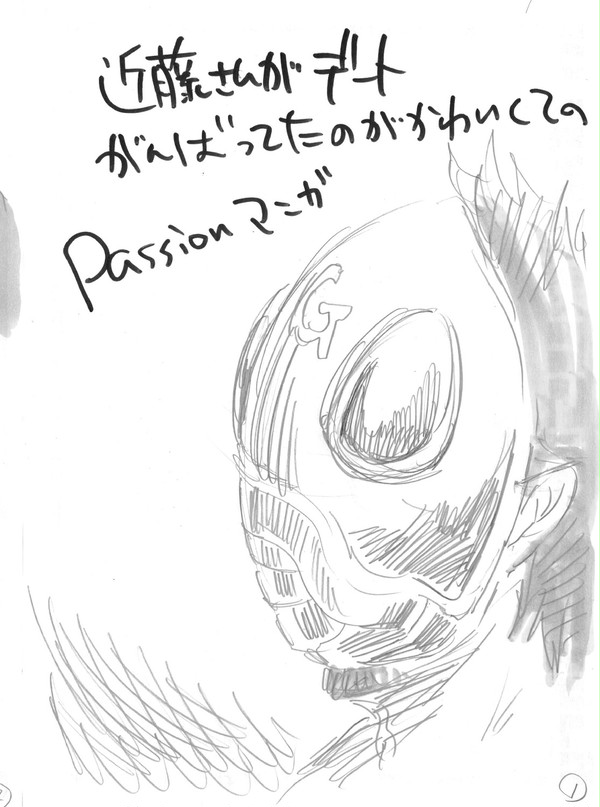 近藤さんがデート
がんばってたのがかわいくての
Passionマンガ
G
1
2